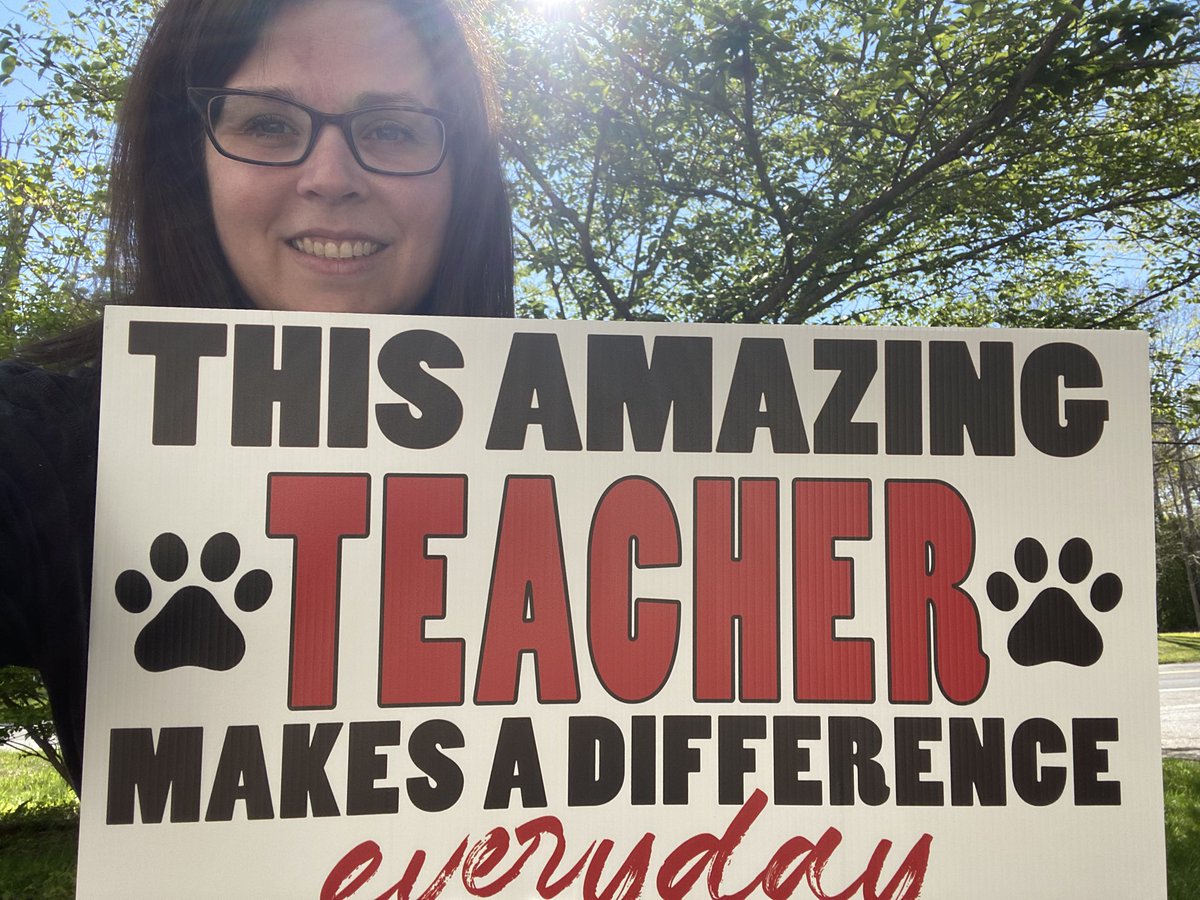 THIS AMAZING
TEACHER
MAKES A DIFFERENCE
everyday